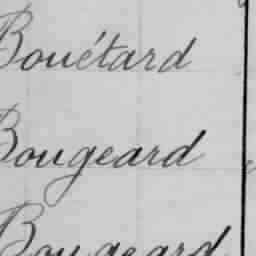 Bouétard
Bougeard
Bougeard